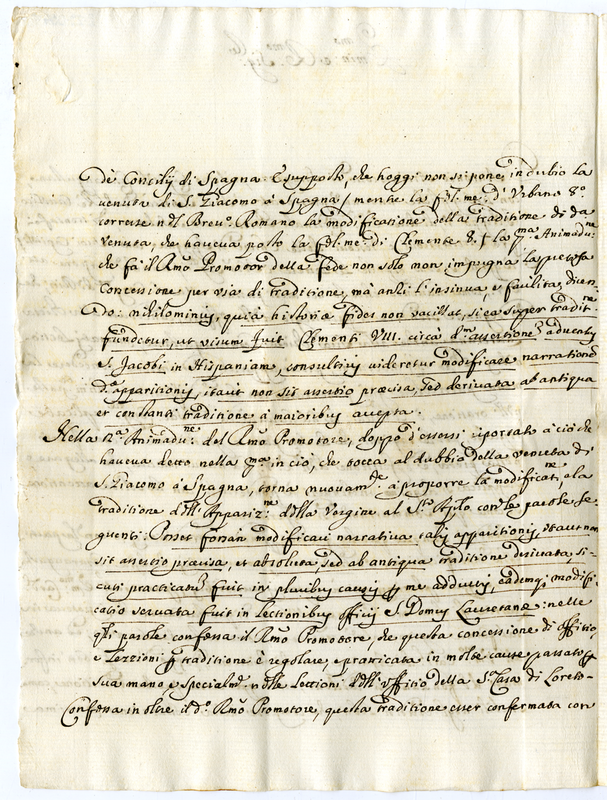 de Concilij di Spagna. E supposto, che hoggi non si pone in dubio la
venuta di S. Giacomo à Spagna / mentre la fel: me: d' Urbano 8º
corresse nel Brevº Romano la modificatione della traditione di da
venuta, che haveva posto la fel: me: di Clemente 8. / la 7ma Animadune
che fà il Rmo Promotor della fede non solo non impugna la pretesa
Concessione per via di traditione, mà anzi l'insinua, e facilita, dicen-
do: nihilominus, quia historiæ fides non vacillat, si ea super traditne
fundetur, ut visum fuit Clementi VIII. circà dm assertione adventus
S. Jacobi in Hispaniam, consultius videretur modificare narratione
da apparitionis, itaut non sit assertio præcisa, sed derivata ab antiqua
et constanti traditione à maioribus accepta.
Nella 12a Animadune: del Rmo Promotore, doppo d'essersi riportato à ciò che
haveva detto nella 7ma in ciò, che tocca al dubbio della venuta di
S. Giacomo à Spagna, torna nuovamte à proporre la modificatne, e la
traditione dell' Apparizne della Vergine al Sto Aplo con le parole se-
guenti: Posset forsan modificari narrativa talis apparitionis, itaut non
sit assertio præcisa, et absoluta, sed ab antiqua traditione derivata, si-
cuti practicatum fuit in pluribus causis per me adductis, eademque modifi-
catio servata fuit in Lectionibus officij S. Domus Lauretanæ: nelle
qli parole confessa il Rmo Promotore, che questa concessione di offitio,
e Lezzioni per traditione è regolare, e pratticata in molte cause passate per
sua mano, e specialmte nelle Lectioni dell' offitio della Sa Casa di Loreto-
Confessa in oltre il do Rmo Promotore, questa traditione esser confermata con